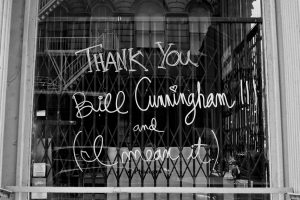 THANK YOU
Bill Cunningham !!!
and
(I mean it)